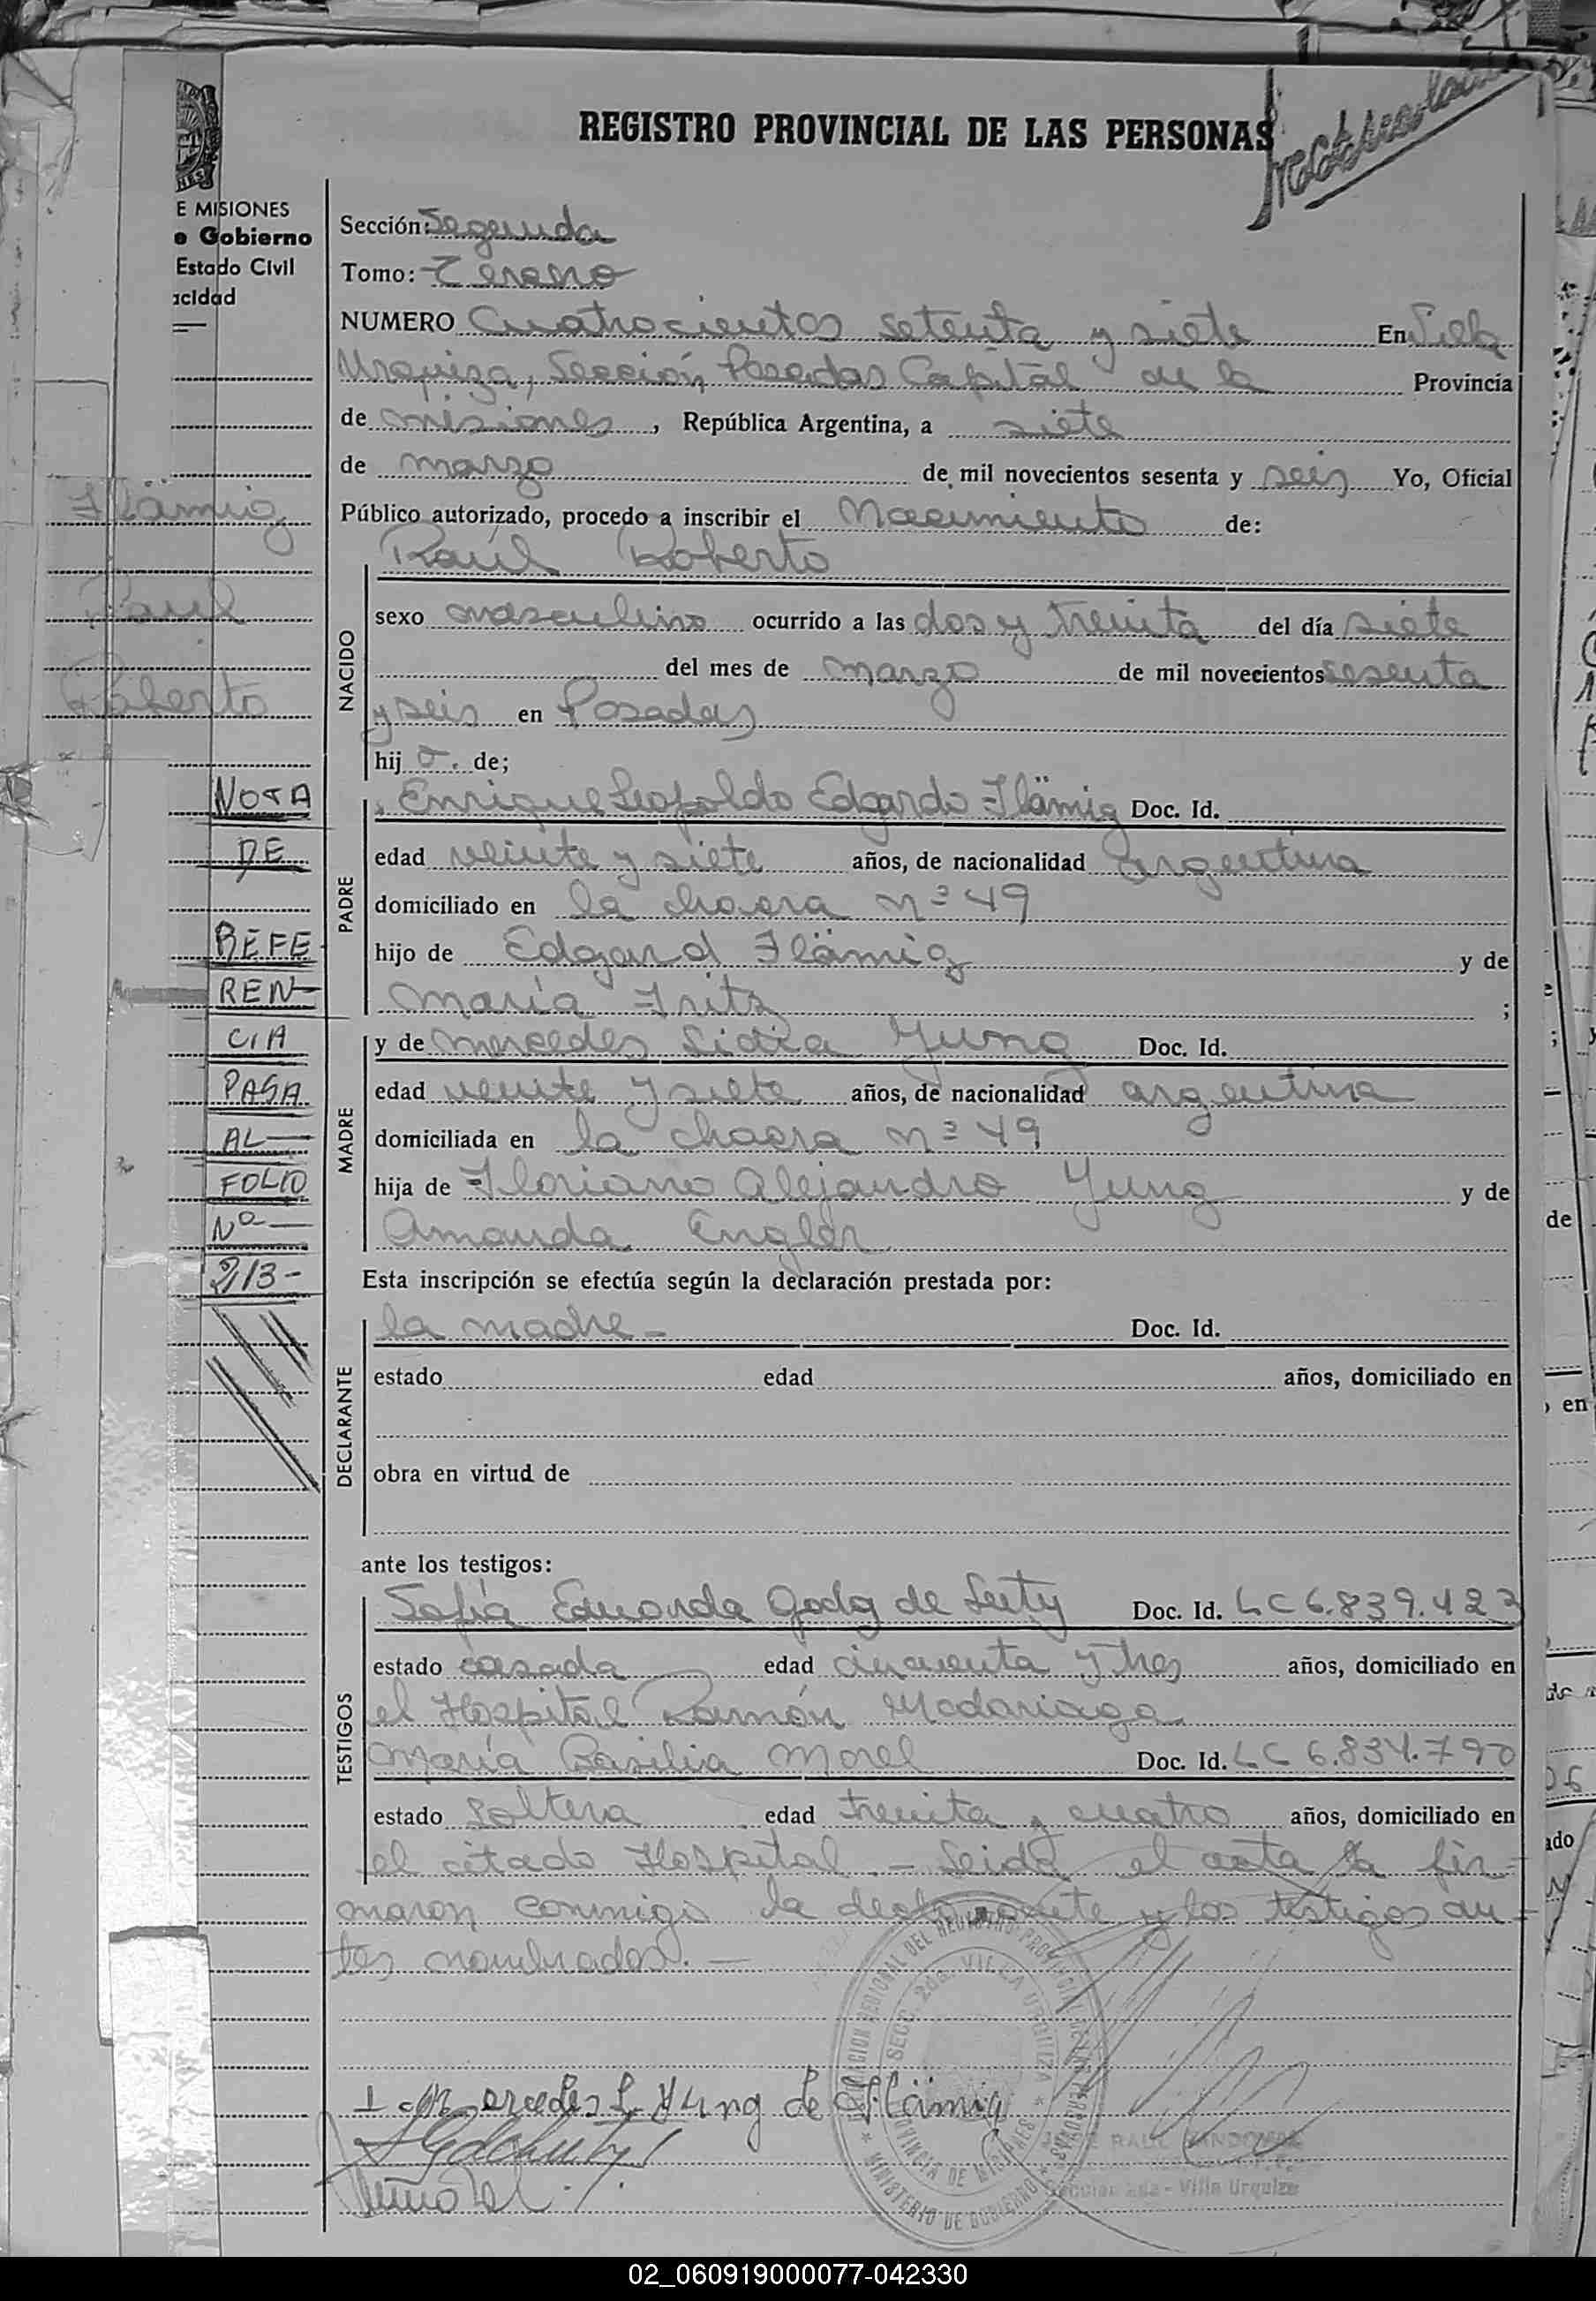 REGISTRO PROVINCIAL DE LAS PERSONAS
E MISIONES
e Gobierno
Estado Civil
acidad
Sección: Segunda
Tomo: Tercero
NUMERO Cuatrocientos setenta y siete En Villa
Urquiza, Sección Posadas Capital de la Provincia
de misiones, República Argentina, a siete
de marzo de mil novecientos sesenta y seis Yo, Oficial
Público autorizado, procedo a inscribir el Nacimiento de:
Flämig
Raul
Roberto
Raúl Roberto
NACIDO
sexo masculino ocurrido a las dos y treinta del día siete
del mes de marzo de mil novecientos sesenta
y seis en Posadas
hij o. de;
PADRE
Enrique Leopoldo Edgardo Flämig Doc. Id.
edad veinte y siete años, de nacionalidad argentina
domiciliado en la chacra nº 49
hijo de Edgard Flämig y de
María Fritz ;
MADRE
y de Mercedes Lidia Yung Doc. Id.
edad veinte y siete años, de nacionalidad argentina
domiciliada en la chacra nº 49
hija de Floriano Alejandro Yung y de
Amanda Engler
NOTA
DE
REFE
REN-
CIA
PASA
AL-
FOLIO
Nº-
213-
Esta inscripción se efectúa según la declaración prestada por:
DECLARANTE
la madre - Doc. Id.
estado edad años, domiciliado en
obra en virtud de
ante los testigos:
TESTIGOS
Sofía Eduarda de Doc. Id. LC 6.839.423
estado casada edad cincuenta y tres años, domiciliado en
el Hospital Ramón Madariaga
María Basilia Morel Doc. Id. LC 6.834.790
estado soltera edad treinta y cuatro años, domiciliado en
el citado Hospital. - Leida el acta la fir-
maron conmigo la declarante y los testigos an-
tes nombrados. -
DEL REGISTRO PROVINCIAL DE LAS PERSONAS
SECC. 2da. VILLA URQUIZA
PROVINCIA DE MISIONES
MINISTERIO DE GOBIERNO
Mercedes L. Yung de Flämig
RAUL
2da - Villa Urquiza
02_060919000077-042330